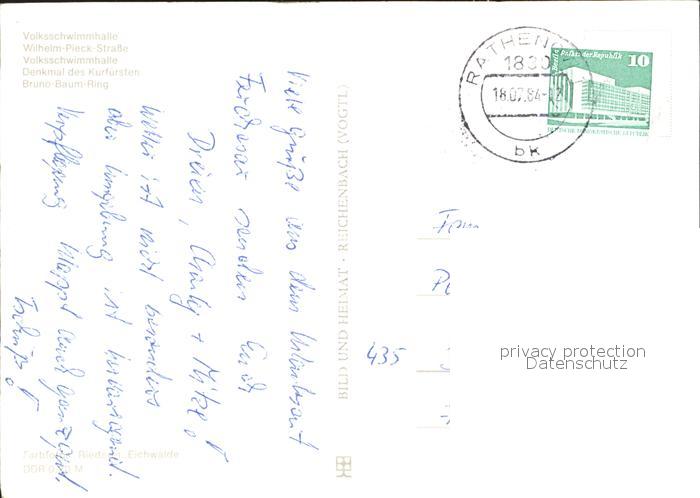 Volksschwimmhalle
Wilhelm-Pieck-Straße
Volksschwimmhalle
Denkmal des Kurfürsten
Bruno-Baum-Ring
Viele Grüße aus dem Urlaubsort
senden Euch
Charly + Mitze!
Wetter ist nicht besonders
aber Umgebung ist
Verpflegung klappt auch ganz gut.
Tschüß!
Farbfotos: Riedel, Eichwalde
DDR M
BILD UND HEIMAT · REICHENBACH (VOGTL)
RATHENOW
1830
18.07.84-12
bk
Berlin Palast der Republik
10
DEUTSCHE DEMOKRATISCHE REPUBLIK
435
privacy protection
Datenschutz